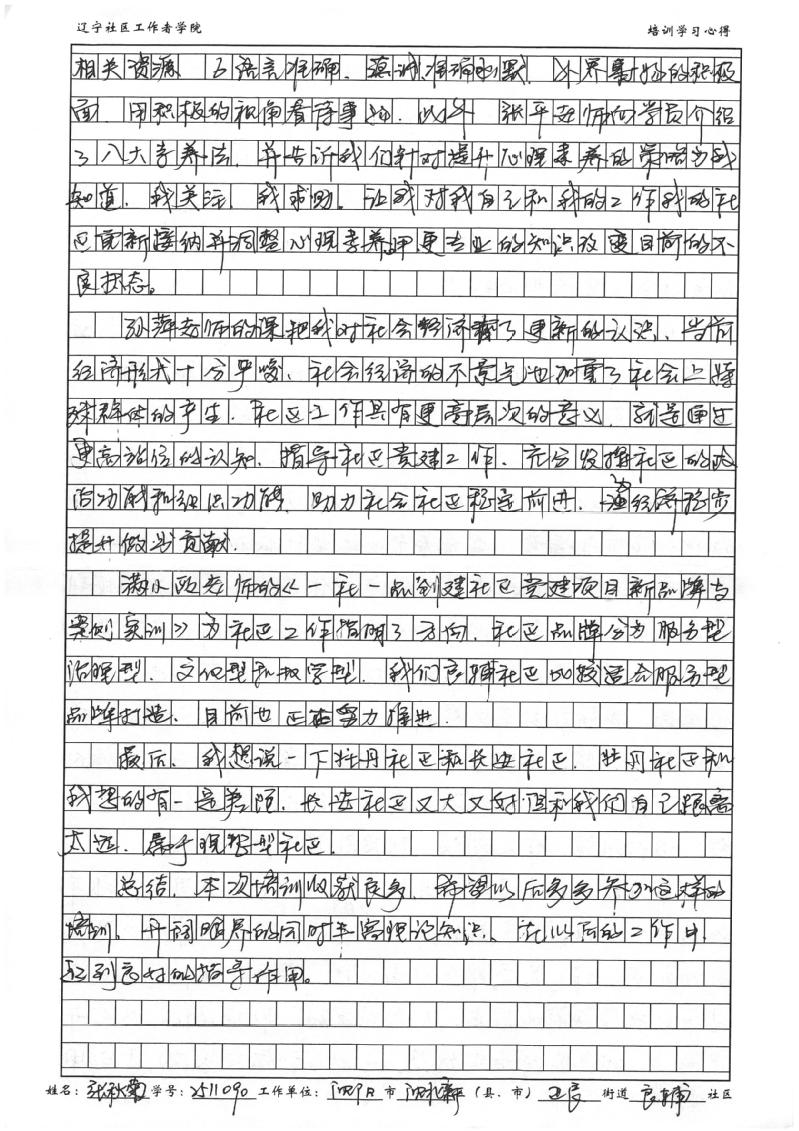 辽宁社区工作者学院 培训学习心得
相关资源 了语言准确、 准确 默、 界事物的积极
面、用积极的视角看待事物、以外 张平老师向学员介绍
了八大素养法、并告诉我们针对提升心理素养的策略为我
知道、我关注、我求助。让我对我自己和我的工作我的社
区重新接纳并调整心理素养、用更专业的知识改变目前的不
良状态。
孙萍老师的课把我对社会经济有了更新的认识、当前
经济形式十分严峻、社会经济的不景气也加重了社会上特
殊群体的产生、社区工作具有更高层次的意义、就是通过
更高站位的认知、指导社区党建工作、充分发挥社区的政
治功能和组织功能、助力社会社区稳定前进、为经济稳步
提升做出贡献、
满 老师的《一社一品创建社区党建项目新品牌与
案例实训》为社区工作指明了方向、社区品牌分为服务型
治理型、文化型和 学型、我们良辅社区比较适合服务型
品牌打造、目前也正在努力推进.
最后、我想说一下牡丹社区和长安社区、牡丹社区和
我想的有一定差距、长安社区又大又好但和我们自己距离
太远、属于理想型社区.
总结、本次培训收获良多、希望以后多多参加这样的
培训、开阔眼界的同时丰富理论知识、在以后的工作中、
起到良好的指导作用。
姓名：张秋菊 学号：2511090 工作单位：沈阳市 沈北新区（县、市） 正良 街道 良辅 社区